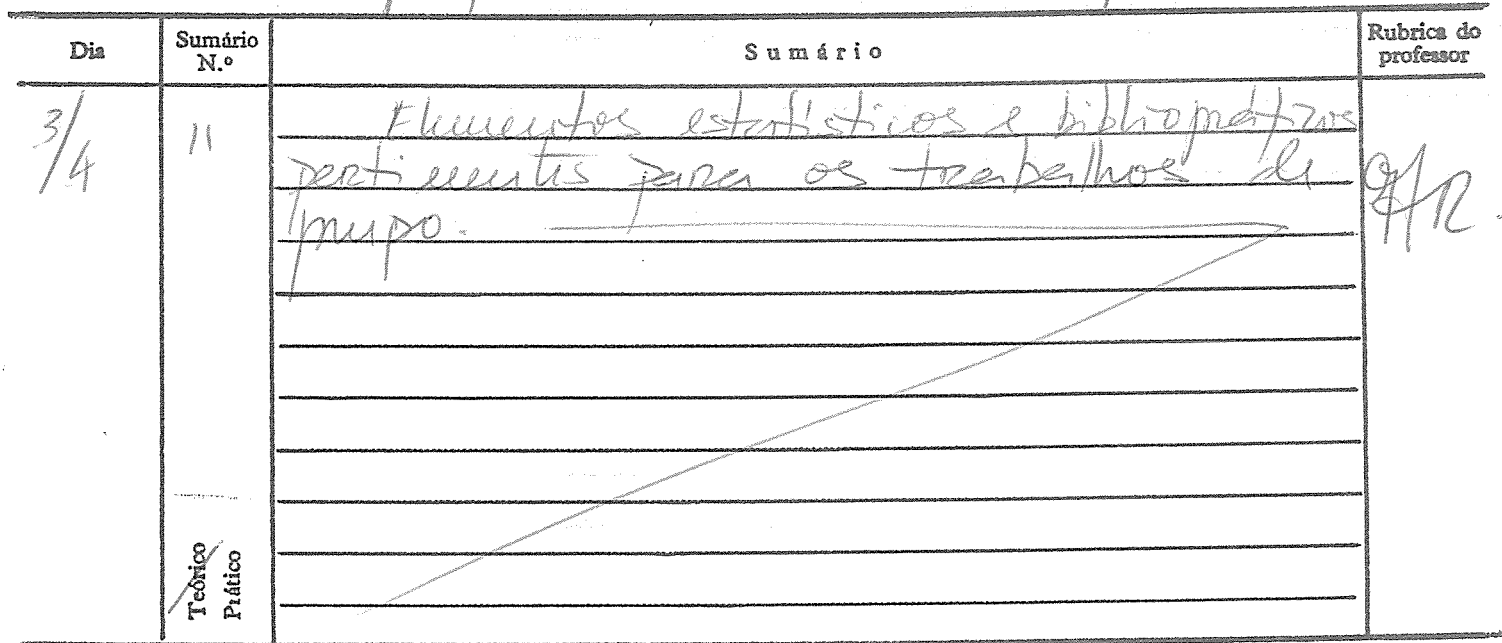 Dia
Sumário N.º
Sumário
Rubrica do professor
3/4
11
Elementos estatísticos e bibliográficos
pertinentes para os trabalhos de
grupo.
Teórico
Prático